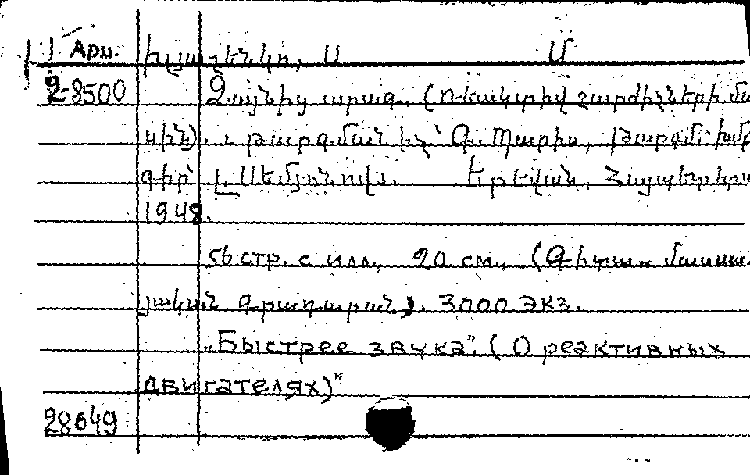 Арм.
2-8500
Ձայնից արագ. (Ռեակտիվ շարժիչների մա
սին). թարգման իչ՝ Գ. Պարիս, թարգմ. խմբ
գիր՝ Լ. Սեմյոնովա. Երեվան, Հայպետհրատ
1948.
56 стр. с илл., 20 см., (Գիտա- մասսա
յական գրադարան). 3000 экз.
"Быстрее звука". (О реактивных
двигателях)"
28649